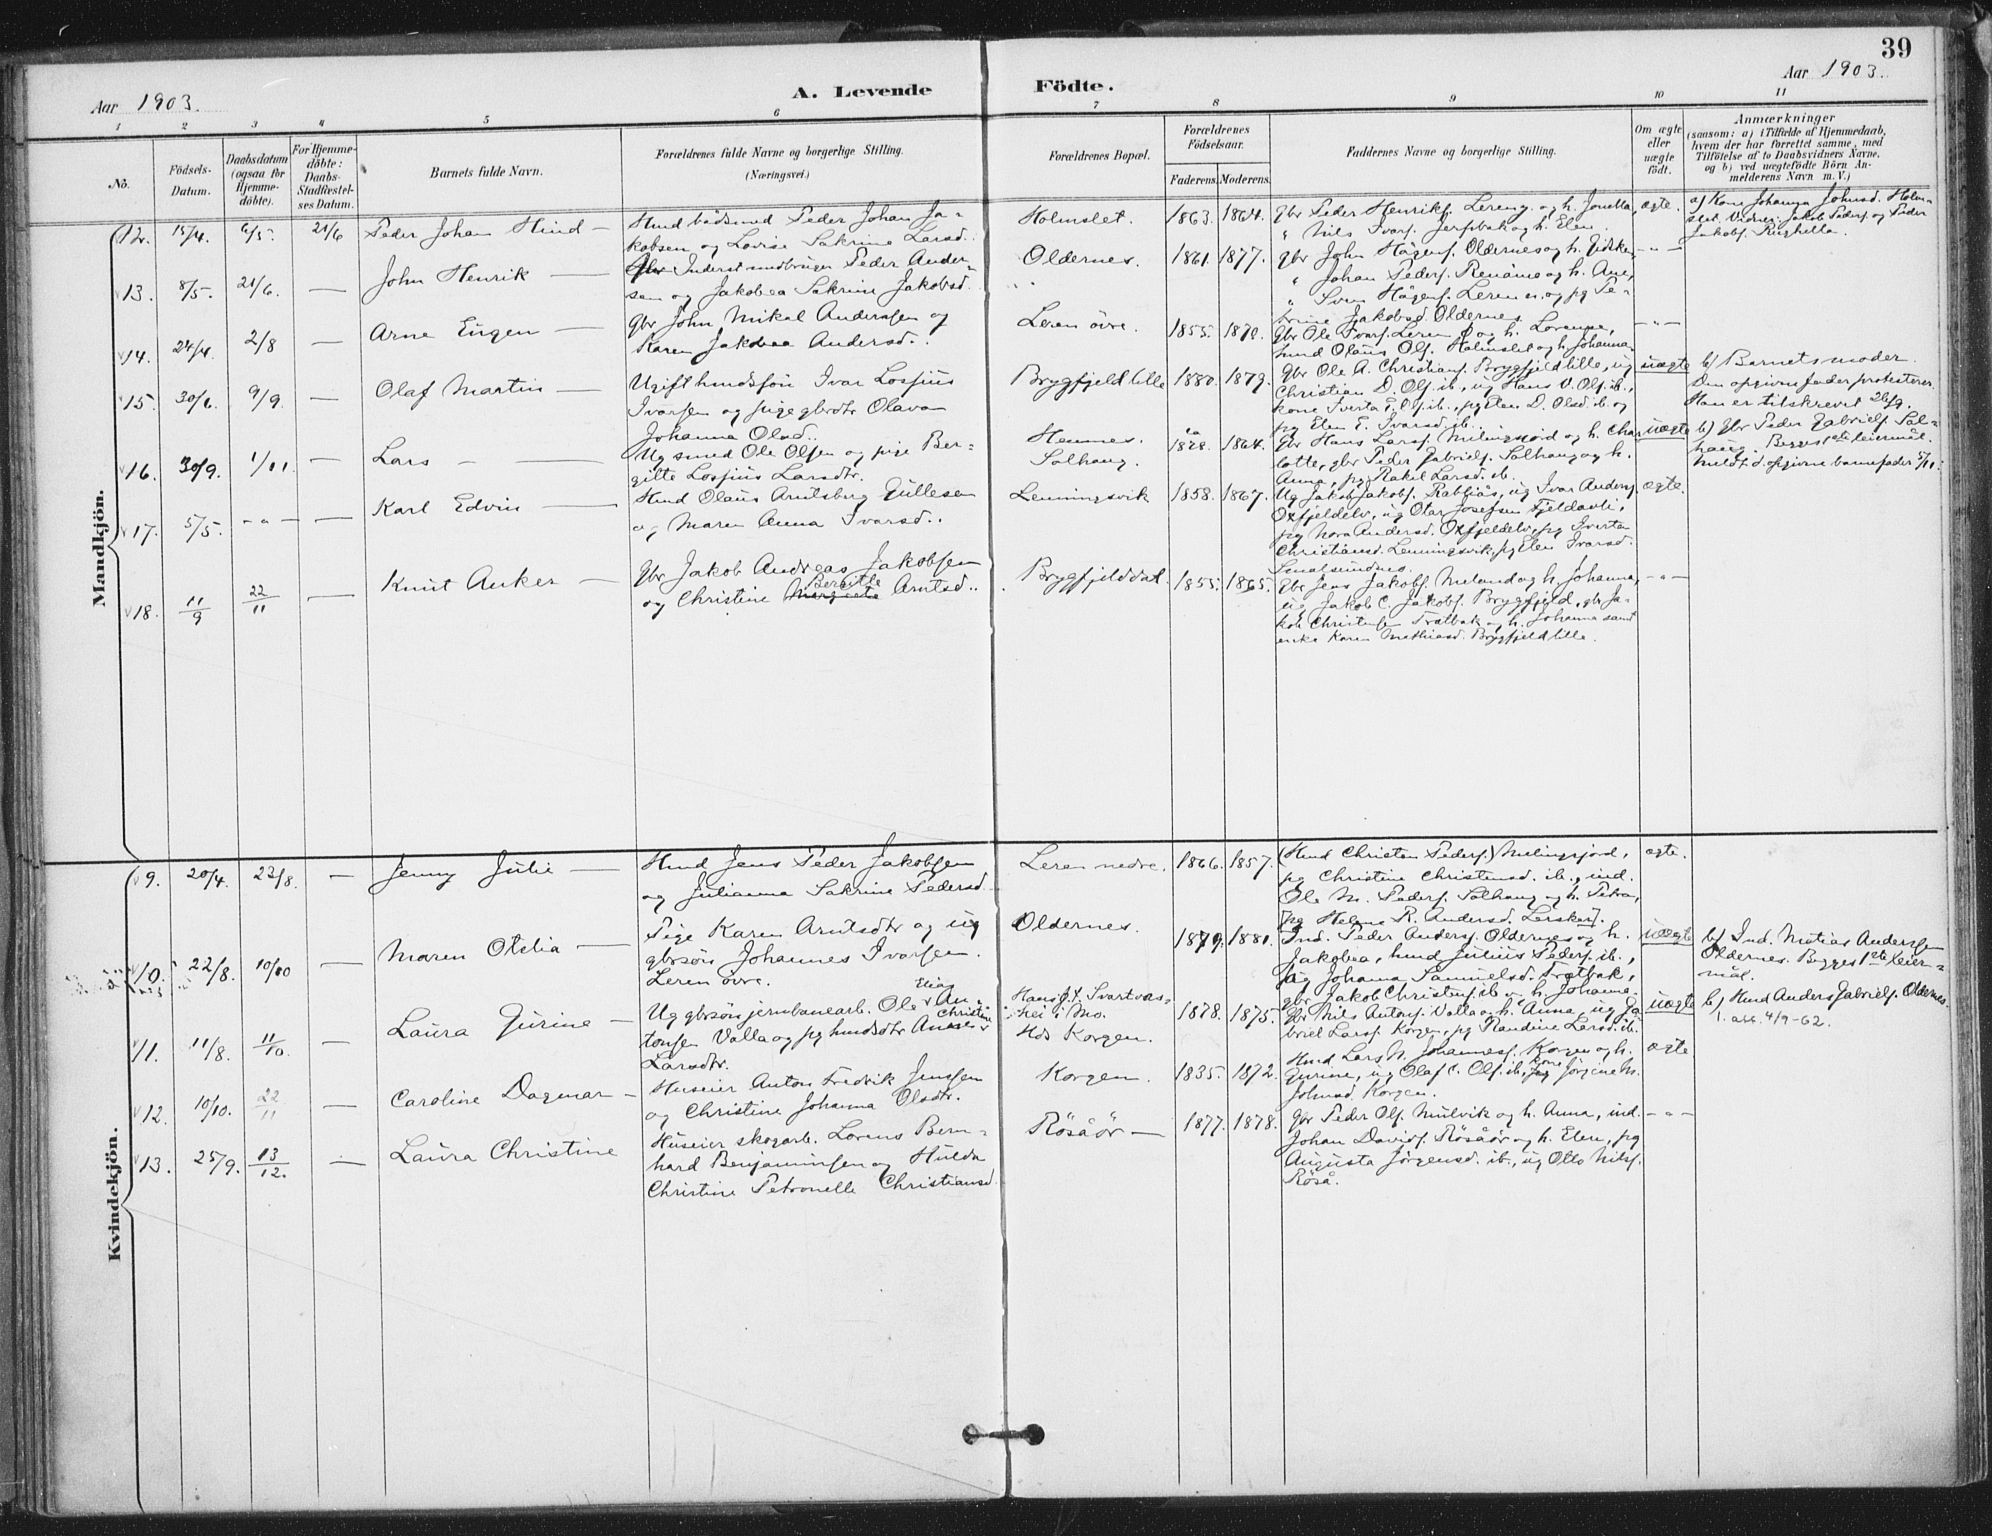 39
Aar 1903.
A. Levende
Födte.
Aar 1903.
1 2 3 4 5 6 7 8 9 10 11
No.
Födsels-
Datum.
Daabsdatum
(ogsaa for
Hjemme-
döbte).
For Hjemme-
döbte:
Daabs-
Stadfæstel-
ses Datum.
Barnets fulde Navn.
Forældrenes fulde Navne og borgerlige Stilling.
(Næringsvei.)
Forældrenes Bopæl.
Forældrenes
Födselsaar.
Faderens. Moderens.
Faddernes Navne og borgerlige Stilling.
Om ægte
eller
uægte
födt.
Anmærkninger
(saasom: a) i Tilfælde af Hjemmedaab,
hvem der har forrettet samme, med
Tilföielse af to Daabsvidners Navne,
og b) ved uægtefödte Börn An-
melderens Navn m. V.)
Mandkjön.
12. 15/4. 6/5. 21/6 Peder Johan Hind —
Hmd bådsmed Peder Johan Ja-
kobsen og Lovise Sakrine Larsd.
Holmslet. 1863. 1864.
gbr Peder Henriks. Lereng og h. Jonetta,
" Nils Ivars. Jerpbak og h. Elen
ægte.
a) Kone Johanna Johnsd. Holm-
slet. Vidner: Jakob Peders. og Peder
Jakobs.
13. 8/5. 21/6. — John Henrik —
Inderst smedbruger Peder Ander-
sen og Jakobea Sakrine Jakobsd.
Oldernes. 1861. 1877.
gbr John Hågens. Oldernes og h. Gidsken,
" Johan Peders. Renåmo og h. Ane,
" Sven Hågens. Leren n. og pg Pe-
trine Jakobsd. Oldernes.
— " —
14. 24/4. 2/8 — Arne Eugen —
gbr John Mikal Anderssen og
Karen Jakobea Andersd..
Leren övre. 1855. 1872.
gbr Ole Ivars. Leren ø og h. Lorense,
hmd Olaus Ols. Holmslet og h. Johanna
— " —
15. 30/6. 9/9. — Olaf Martin —
Ugift hmdssön Ivar Losjius
Ivarsen og pige gbrdtr Olava
Johanna Olsd..
Brygfjeld lille 1880. 1879.
gbr Ole A. Christians. Brygfjeld lille, ug
Christian D. Ols. ib., ug Hans V. Ols. ib.,
kone Iverta E. Ols. ib., pg Elen D. Olsd. ib. og
pg Elen E. Ivarsd. ib..
uægte
b) Barnets moder.
Den opgivne fader protesterer.
Han er tilskrevet 26/9.
16. 30/9. 1/11. — Lars — —
Ug smed Ole Olsen og pige Ber-
gitte Losjius Larsdtr.
Hemnes.
Solhaug.
ca
1828. 1864.
gbr Hans Larss. Melingsjord og h. Char-
lotte, gbr Peder Gabriels. Solhaug og h.
Anna, pg Rakel Larsd. ib.
uægte
b) Gbr Peder Gabriels. Sol-
haug. Begges 1ste leiermål.
Meldt d. opgivne barnefader 5/11.
17. 5/5. — " — — Karl Edvin —
Hmd Olaus Arntsberg Gullesen
og Maren Anna Ivarsd..
Lenningsvik 1858. 1867.
Ug Jakob Jakobs. Rabliås, ug Ivar Anders.
Oxfjeldelv, ug Olar Josefsen Fjeldavli,
pg Nora Andersd. Oxfjeldelv, pg Iverta
Christiansd. Lenningsvik, pg Elen Ivarsd.
Smalsundmo.
ægte.
18. 11/9 22/11 — Knut Anker —
gbr Jakob Andreas Jakobsen
og Christine Margrete Bergithe Arntsd..
Brygfjelddal. 1855. 1865.
gbr Jens Jakobs. Meland og h. Johanna,
ug Jakob C. Jakobs. Brygfjeld, gbr Ja-
kob Christensen Trætbak og h. Johanna samt
enke Karen Mathiasd. Brygfjeld lille.
— " —
Kvindekjön.
9. 20/4. 23/8. — Jenny Julie —
Hmd Jens Peder Jakobsen
og Julianna Sakrine Pedersd.
Leren nedre. 1866. 1857.
(Hmd Christen Peders.) Melingsjord,
pg Christine Christensd. ib., ind.
Ole M. Peders. Solhaug og h. Petra,
[pg Helene R. Andersd. Lersker].
ægte.
10. 22/8. 10/10 — Maren Otelia —
Pige Karen Arntsdtr og ug
gbrsön Johannes Ivarsen.
Leren övre.
Oldernes. 1879. 1881.
Ind. Peder Anders. Oldernes og h.
Jakobea, hmd Julius Peders. ib.,
pg Johanna Samuelsd. Trætbak,
gbr Jakob Christens. ib og h. Johanna.
uægte
b) Ind. Matias Anderssen
Oldernes. Begges 1ste leier-
mål.
11. 11/8. 11/10. — Laura Gurine —
Ug gbrsön jernbanearb. Ole Elias An-
tonsen Valla og pg hmdsdtr Anne Christine
Larsdtr.
Hans J. t. Svartvas-
hei i Mo.
Hds Korgen.
1878. 1875.
gbr Nils Antons. Valla og h. Anna, ug Ga
briel Larss. Korgen, pg Nandine Larsd. ib.
uægte
b) Hmd Anders Gabriels. Oldernes.
1. att. 4/9-62.
12. 10/10. 22/11 — Caroline Dagmar —
Huseier Anton Fredrik Jenssen
og Christine Johanna Olsdtr.
Korgen. 1835. 1872.
Hmd Lars N. Johanness. Korgen og h.
Gurine, ug Olaf C. Ols. ib., kone Jörgine M.
Johnsd. Korgen.
ægte
13. 25/9. 13/12. — Laura Christine
Huseier skogarb. Lorens Bern-
hard Benjaminsen og Hulda
Christine Petronelle Christiansd.
Rösåör — 1877. 1878.
gbr Peder Ols. Mulvik og h. Anna, ind.
Johan Davids. Rösåör og h. Elen, pg
Augusta Jörgensd. ib., ug Otto Nils.
Röså.
— " —